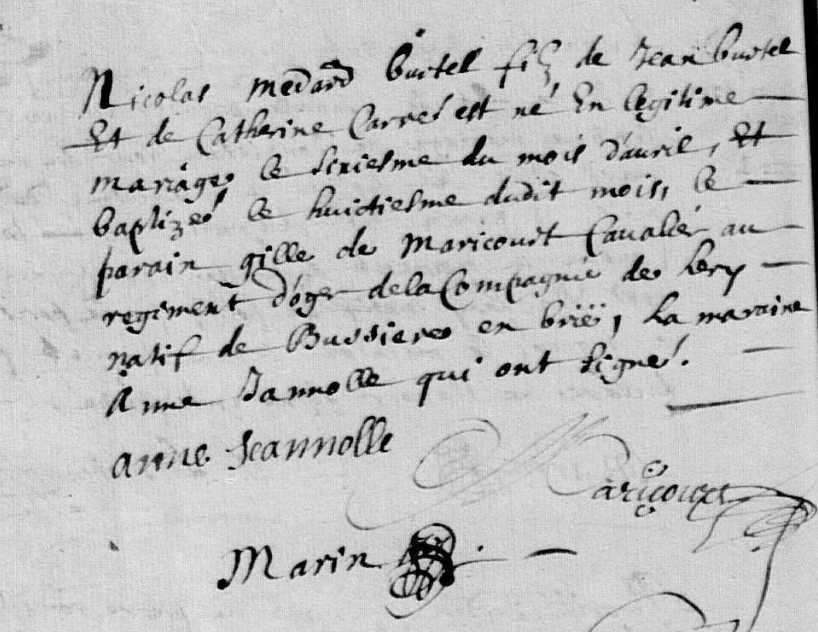 Nicolas medard burtel filz de Jean burtel
Et de Catherine Carré est né En legitime
mariage le sixiesme du mois d'auril, Et
baptizé le huictiesme dudit mois, le
parain gille de maricourt Cavalier au
regiment d'oger de la Compagnie de lery
natif de Bussieres en brië, La maraine
Anne Jannolle qui ont signé.
anne Jeannolle
Maricourt
Marin